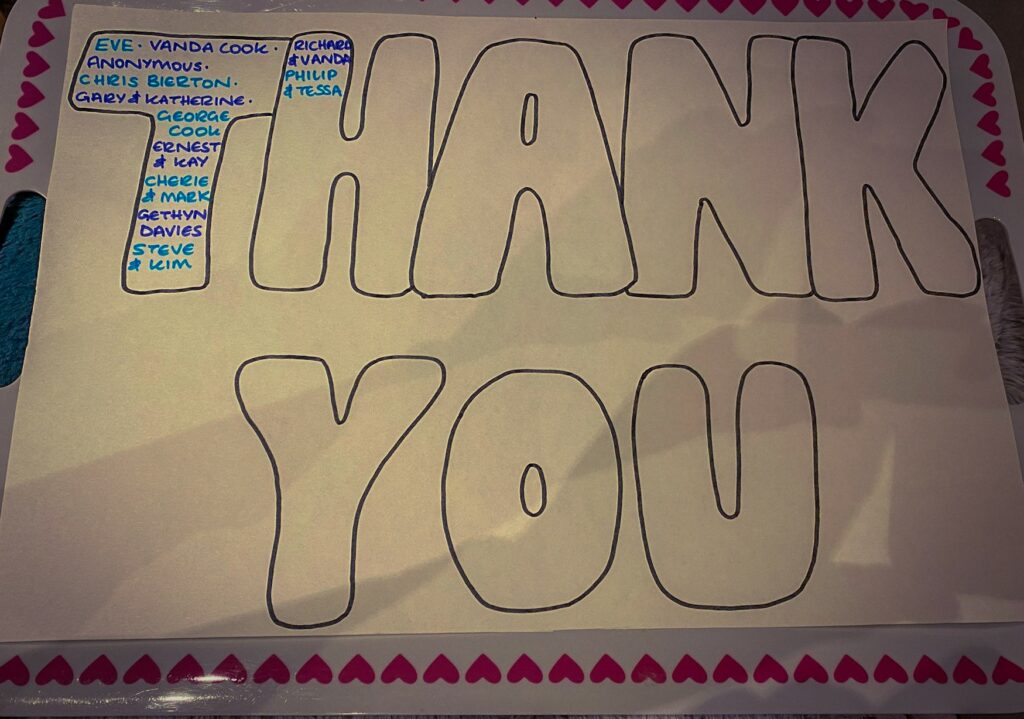 THANK
EVE. VANDA COOK.
ANONYMOUS.
CHRIS BIERTON.
GARY & KATHERINE.
GEORGE
COOK
ERNEST
& KAY
CHERIE
& MARK
GETHYN
DAVIES
STEVE
& KIM
RICHARD
& VANDA
PHILIP
& TESSA
YOU